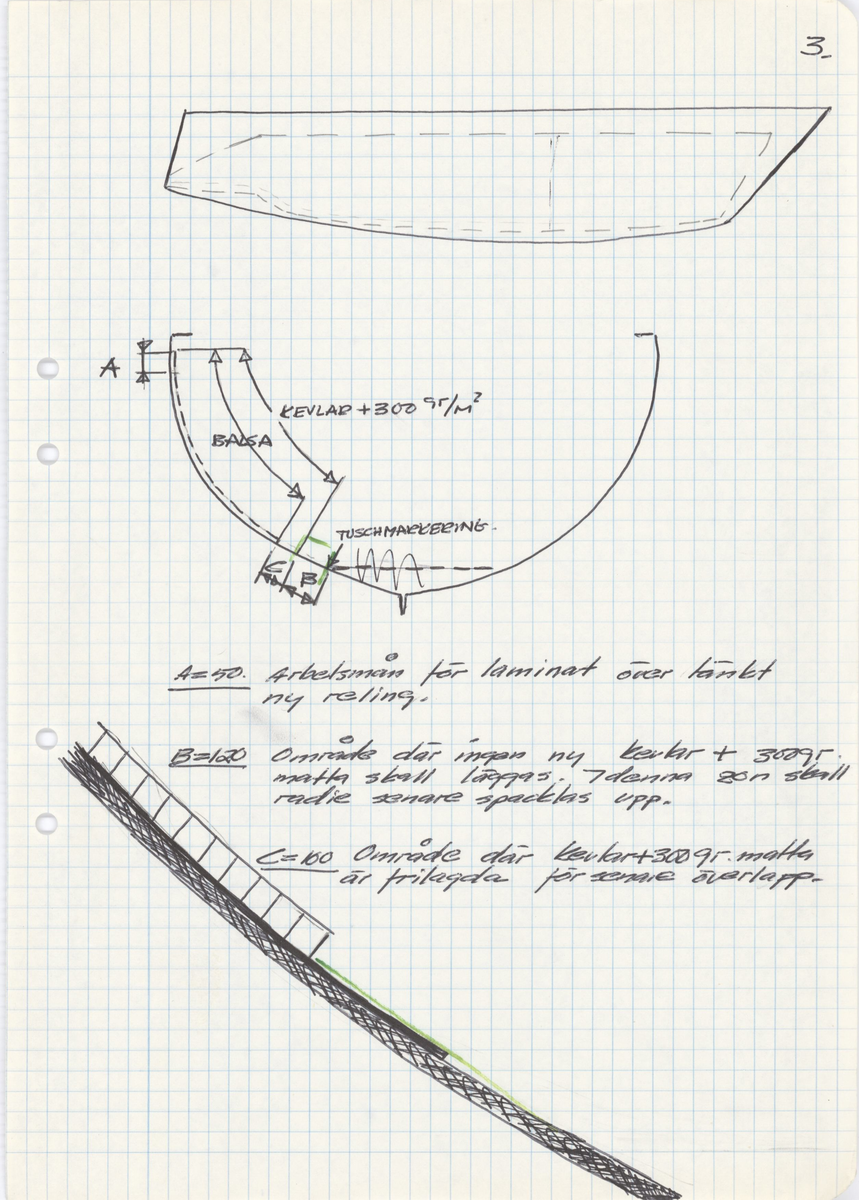 3.
A
KEVLAR + 300 gr/M²
BALSA
TUSCHMARKERING.
C
B
A=50. Arbetsmån för laminat över tänkt
ny reling.
B=120 Område där ingen ny kevlar + 300gr.
matta skall läggas. I denna zon skall
radie senare spacklas upp.
C=100 Område där kevlar+300gr. matta
är frilagda för senare överlapp.